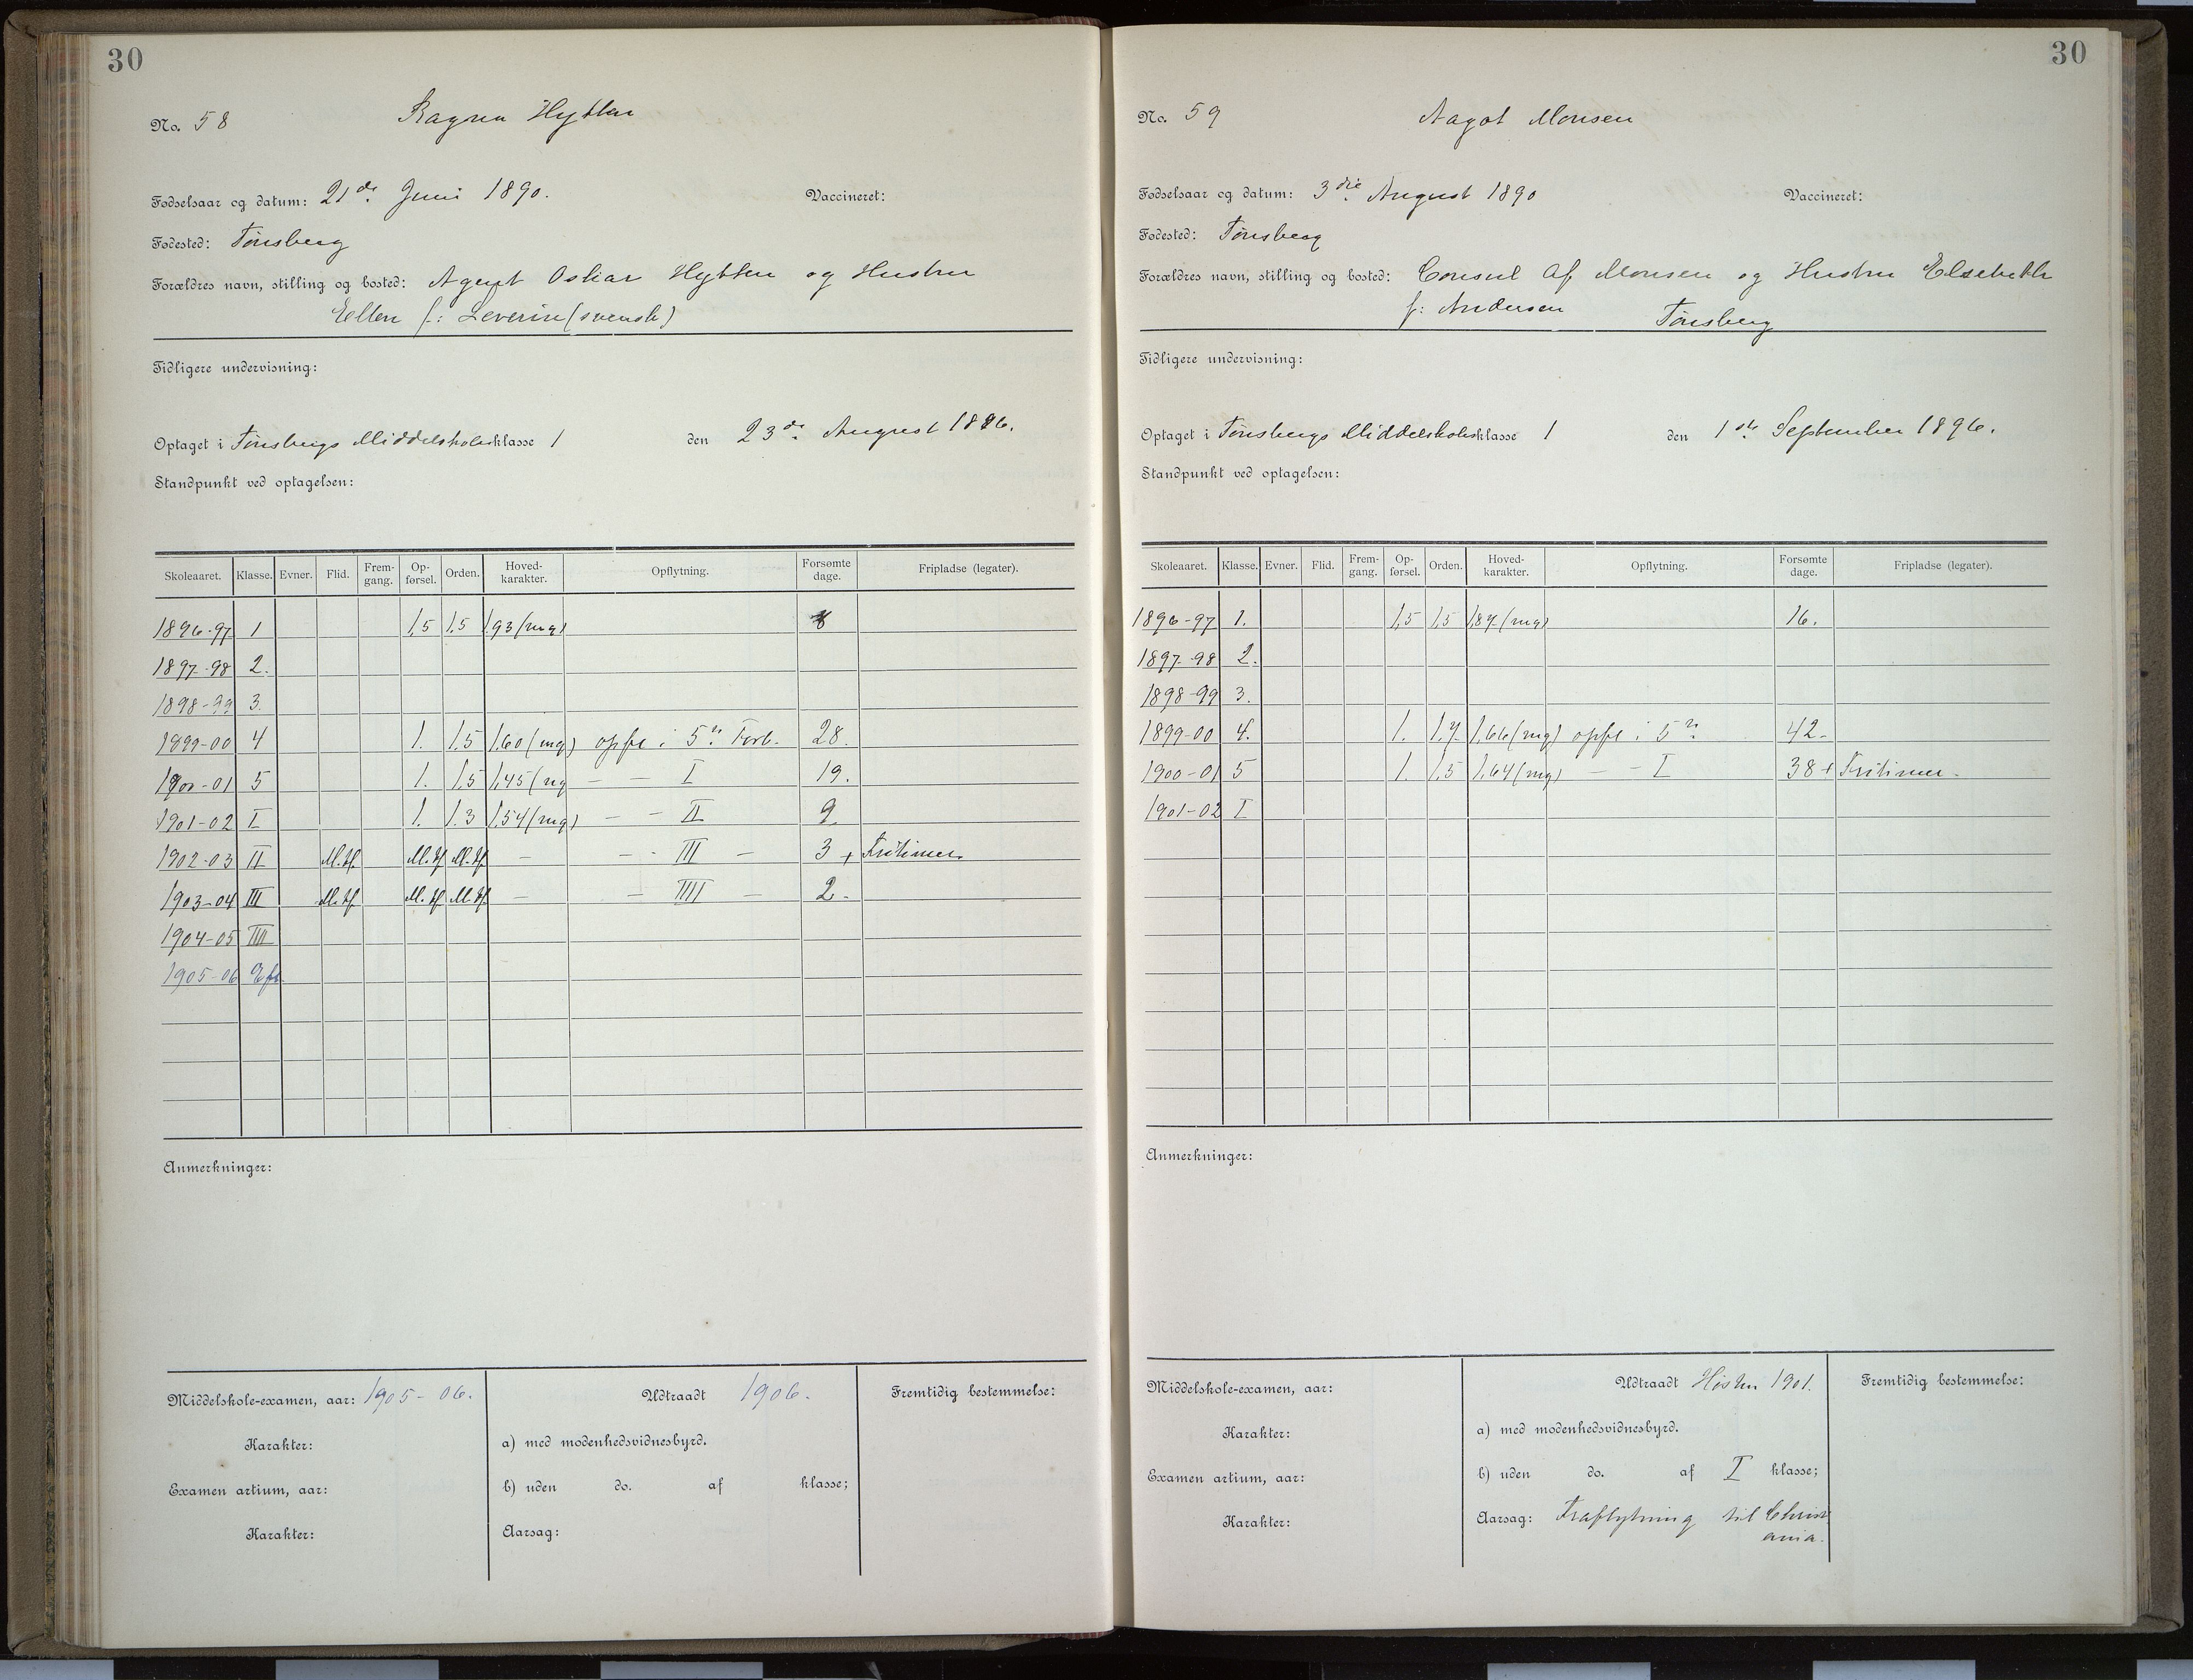 30
No. 58 Ragna Hytten
Fødselsaar og datum: 21de Juni 1890. Vaccineret:
Fødested: Tønsberg
Forældres navn, stilling og bosted: Agent Oskar Hytten og Hustru
Ellen f: Leverin (svensk)
Tidligere undervisning:
Optaget i Tønsbergs Middelskoles klasse 1 den 23de August 1896.
Standpunkt ved optagelsen:
Skoleaaret. Klasse. Evner. Flid. Frem-gang. Op-førsel. Orden. Hoved-karakter. Opflytning. Forsømte dage. Fripladse (legater).
1896-97 1 1,5 1,5 1,93 (mg)
1897-98 2.
1898-99 3.
1899-00 4 1. 1,5 1,60 (mg) opfl i 5te Forb. 28.
1900-01 5 1. 1,5 1,45 (mg — — I 19.
1901-02 I 1. 1.3 1,54 (mg) — — II 9
1902-03 II M.tf M.tf M.tf — — - III — 3 + Fritimer.
1903-04 III M.tf M.tf M.tf — — IIII — 2-
1904-05 IIII
1905-06 Efl.
Anmerkninger:
Middelskole-examen, aar: 1905-06. Udtraadt 1906. Fremtidig bestemmelse:
Karakter: a) med modenhedsvidnesbyrd.
Examen artium, aar: b) uden do. af klasse;
Karakter: Aarsag:
30
No. 59 Aagot Monsen
Fødselsaar og datum: 3die August 1890 Vaccineret:
Fødested: Tønsberg
Forældres navn, stilling og bosted: Consul Af Monsen og Hustru Elsebeth
f: Andersen Tønsberg
Tidligere undervisning:
Optaget i Tønsbergs Middelskoles klasse 1 den 1ste September 1896.
Standpunkt ved optagelsen:
Skoleaaret. Klasse. Evner. Flid. Frem-gang. Op-førsel. Orden. Hoved-karakter. Opflytning. Forsømte dage. Fripladse (legater).
1896-97 1. 1,5 1,5 1,87 (mg) 16.
1897-98 2.
1898-99 3.
1899-00 4. 1. 1.7 1,66 (mg) opfl i 5te 42-
1900-01 5 1. 1,5 1,64 (mg) — — I 38 + Fritimer.
1901-02 I
Anmerkninger:
Middelskole-examen, aar: Udtraadt Høsten 1901. Fremtidig bestemmelse:
Karakter: a) med modenhedsvidnesbyrd.
Examen artium, aar: b) uden do. af I klasse;
Karakter: Aarsag: Fraflytning til Christ
ania.